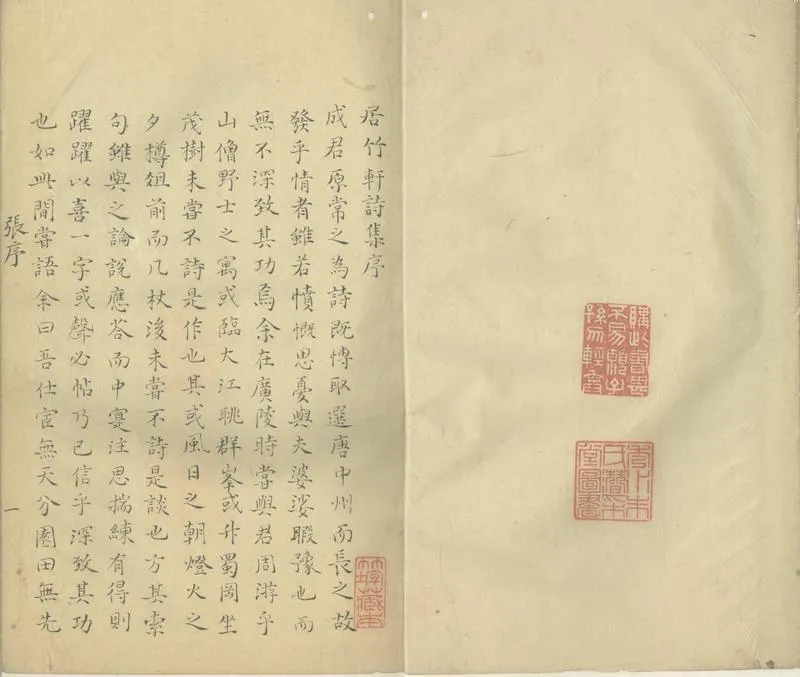 購此書甚
不易願子
孫勿輕棄
秀水朱
氏潛采
堂圖書
居竹軒詩集序
成君原常之為詩既慱取選唐中州而長之故
發乎情者雖若憤慨思憂與夫婆娑暇豫也而
無不深致其功焉余在廣陵時嘗與君周游乎
山僧野士之寓或臨大江眺群峯或升蜀岡坐
茂樹未嘗不詩是作也其或風日之朝燈火之
夕樽俎前而几杖後未嘗不詩是談也方其索
句雖與之論說應荅而中寔注思揣練有得則
躍躍以喜一字或聲必帖乃已信乎深致其功
也如此間嘗語余曰吾仕宦無天分園田無先
張序 一
竹垞藏本